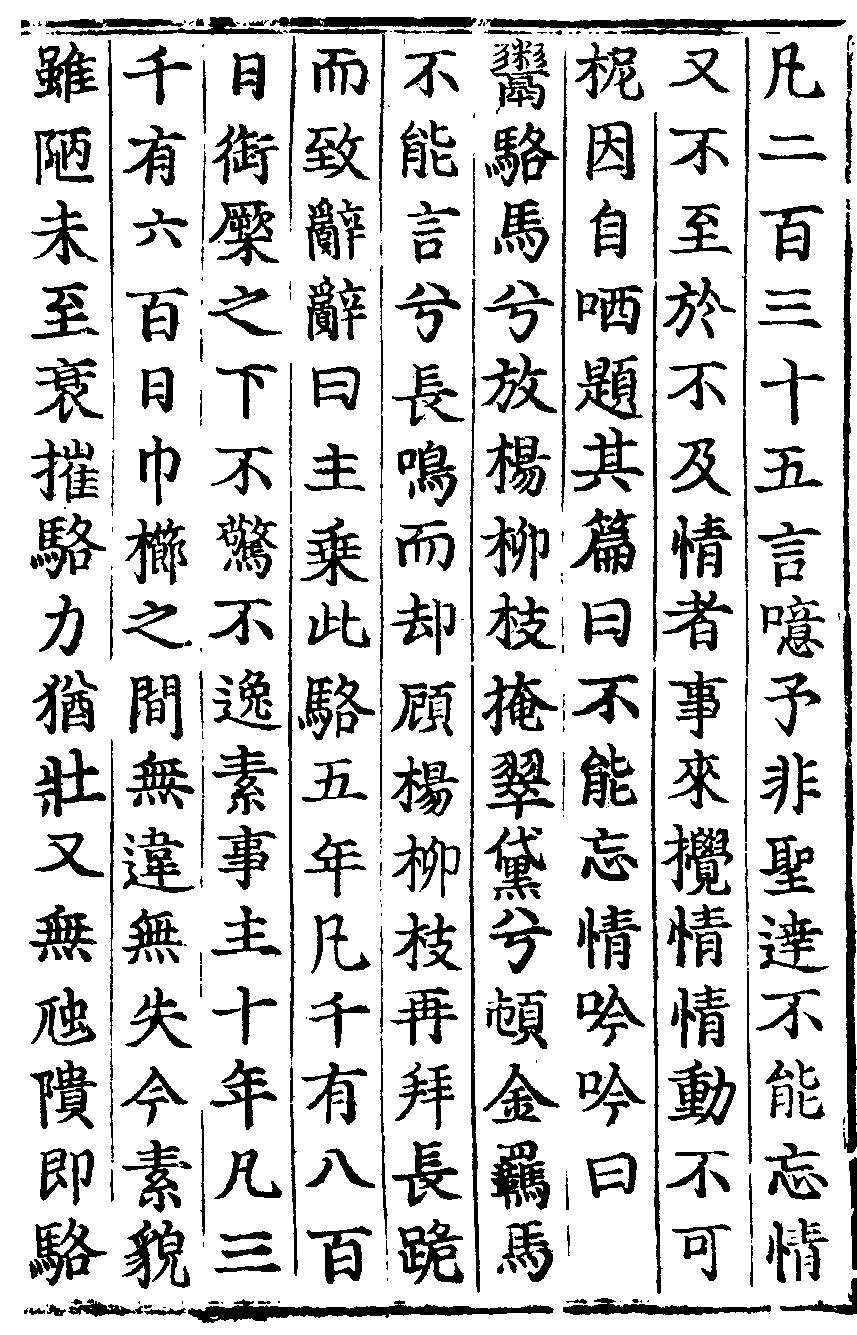 凡二百三十五言噫予非聖達不能忘情
又不至於不及情者事來攪情情動不可
柅因自哂題其篇曰不能忘情吟吟曰
鬻駱馬兮放楊柳枝掩翠黛兮頓金羈馬
不能言兮長鳴而却顧楊柳枝再拜長跪
而致辭辭曰主乗此駱五年凡千有八百
日銜橜之下不驚不逸素事主十年凡三
千有六百日巾櫛之間無違無失今素貌
雖陋未至衰摧駱力猶壯又無虺隤即駱